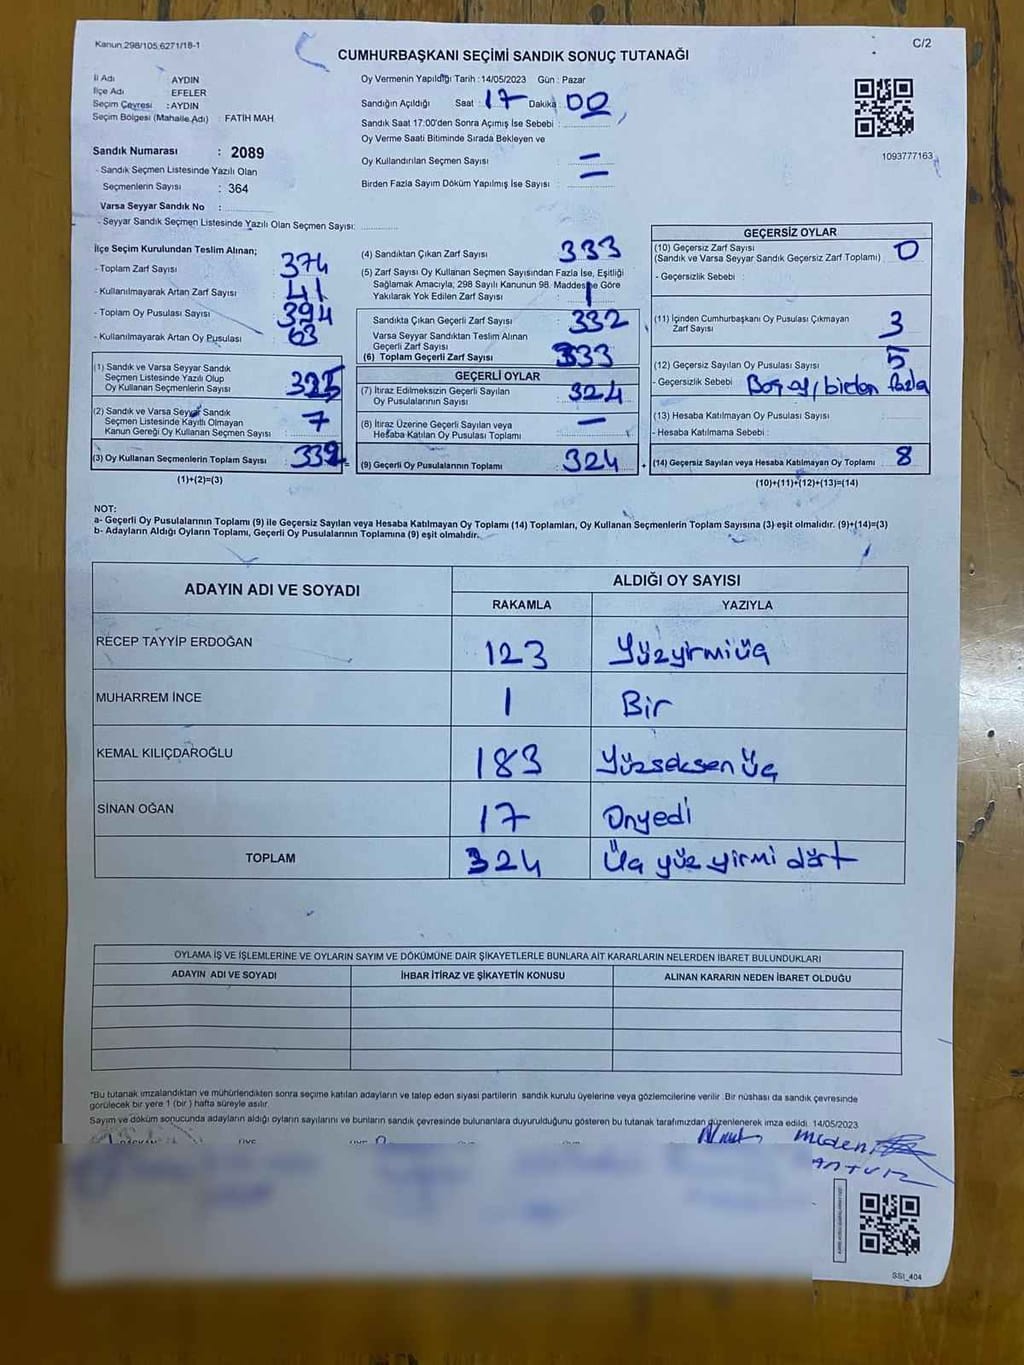 Kanun 298/105,6271/18-1
C/2
CUMHURBAŞKANI SEÇİMİ SANDIK SONUÇ TUTANAĞI
İl Adı AYDIN
İlçe Adı EFELER
Seçim Çevresi : AYDIN
Seçim Bölgesi (Mahalle Adı) : FATİH MAH.
Sandık Numarası : 2089
- Sandık Seçmen Listesinde Yazılı Olan
Seçmenlerin Sayısı : 364
Varsa Seyyar Sandık No :
- Seyyar Sandık Seçmen Listesinde Yazılı Olan Seçmen Sayısı:
Oy Vermenin Yapıldığı Tarih : 14/05/2023 Gün : Pazar
Sandığın Açıldığı Saat : 17 Dakika 00
Sandık Saat 17:00'den Sonra Açımış İse Sebebi :
Oy Verme Saati Bitiminde Sırada Bekleyen ve
Oy Kullandırılan Seçmen Sayısı –
Birden Fazla Sayım Döküm Yapılmış İse Sayısı : –
1093777163
İlçe Seçim Kurulundan Teslim Alınan;
- Toplam Zarf Sayısı 374
- Kullanılmayarak Artan Zarf Sayısı 41
- Toplam Oy Pusulası Sayısı 394
- Kullanılmayarak Artan Oy Pusulası 63
(1) Sandık ve Varsa Seyyar Sandık
Seçmen Listesinde Yazılı Olup
Oy Kullanan Seçmenlerin Sayısı 325
(2) Sandık ve Varsa Seyyar Sandık
Seçmen Listesinde Kayıtlı Olmayan
Kanun Gereği Oy Kullanan Seçmen Sayısı 7
(3) Oy Kullanan Seçmenlerin Toplam Sayısı 332 =
(1)+(2)=(3)
(4) Sandıktan Çıkan Zarf Sayısı 333
(5) Zarf Sayısı Oy Kullanan Seçmen Sayısından Fazla İse, Eşitliği
Sağlamak Amacıyla, 298 Sayılı Kanunun 98. Maddesine Göre
Yakılarak Yok Edilen Zarf Sayısı 1
Sandıkta Çıkan Geçerli Zarf Sayısı 332
Varsa Seyyar Sandıktan Teslim Alınan
Geçerli Zarf Sayısı
(6) Toplam Geçerli Zarf Sayısı 333
GEÇERLİ OYLAR
(7) İtiraz Edilmeksizin Geçerli Sayılan
Oy Pusulalarının Sayısı 324
(8) İtiraz Üzerine Geçerli Sayılan veya
Hesaba Katılan Oy Pusulası Toplamı –
(9) Geçerli Oy Pusulalarının Toplamı 324 +
GEÇERSİZ OYLAR
(10) Geçersiz Zarf Sayısı
(Sandık ve Varsa Seyyar Sandık Geçersiz Zarf Toplamı) 0
- Geçersizlik Sebebi :
(11) İçinden Cumhurbaşkanı Oy Pusulası Çıkmayan
Zarf Sayısı 3
(12) Geçersiz Sayılan Oy Pusulası Sayısı 5
- Geçersizlik Sebebi Boş oy/birden fazla
(13) Hesaba Katılmayan Oy Pusulası Sayısı
- Hesaba Katılmama Sebebi :
(14) Geçersiz Sayılan veya Hesaba Katılmayan Oy Toplamı 8
(10)+(11)+(12)+(13)=(14)
NOT:
a- Geçerli Oy Pusulalarının Toplamı (9) ile Geçersiz Sayılan veya Hesaba Katılmayan Oy Toplamı (14) Toplamları, Oy Kullanan Seçmenlerin Toplam Sayısına (3) eşit olmalıdır. (9)+(14)=(3)
b- Adayların Aldığı Oyların Toplamı, Geçerli Oy Pusulalarının Toplamına (9) eşit olmalıdır.
ADAYIN ADI VE SOYADI ALDIĞI OY SAYISI
RAKAMLA YAZIYLA
RECEP TAYYİP ERDOĞAN 123 Yüzyirmiüç
MUHARREM İNCE 1 Bir
KEMAL KILIÇDAROĞLU 183 Yüzseksen Üç
SİNAN OĞAN 17 Onyedi
TOPLAM 324 Üç yüz yirmi dört
OYLAMA İŞ VE İŞLEMLERİNE VE OYLARIN SAYIM VE DÖKÜMÜNE DAİR ŞİKAYETLERLE BUNLARA AİT KARARLARIN NELERDEN İBARET BULUNDUKLARI
ADAYIN ADI VE SOYADI İHBAR İTİRAZ VE ŞİKAYETİN KONUSU ALINAN KARARIN NEDEN İBARET OLDUĞU
*Bu tutanak imzalandıktan ve mühürlendikten sonra seçime katılan adayların ve talep eden siyasi partilerin sandık kurulu üyelerine veya gözlemcilerine verilir. Bir nüshası da sandık çevresinde
görülecek bir yere 1 (bir ) hafta süreyle asılır.
Sayım ve döküm sonucunda adayların aldığı oyların sayılarını ve bunların sandık çevresinde bulunanlara duyurulduğunu gösteren bu tutanak tarafımızdan düzenlenerek imza edildi. 14/05/2023
SSİ_404